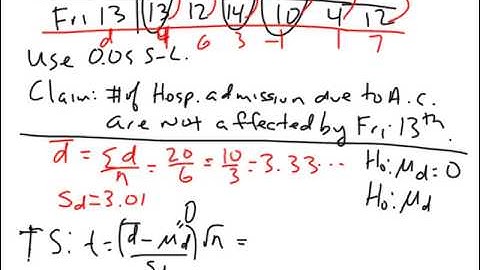 Fri 13 13 12 14 10 4 12
d 4 6 3 -1 1 7
Use 0.05 S-L.
Claim: # of Hosp. admission due to A.C.
are not affected by Fri. 13th.
d̄ = Σd/n = 20/6 = 10/3 = 3.33... H₀: μd = 0
Sd = 3.01 H₀: μd
0
TS: t = (d̄ - μd)√n =